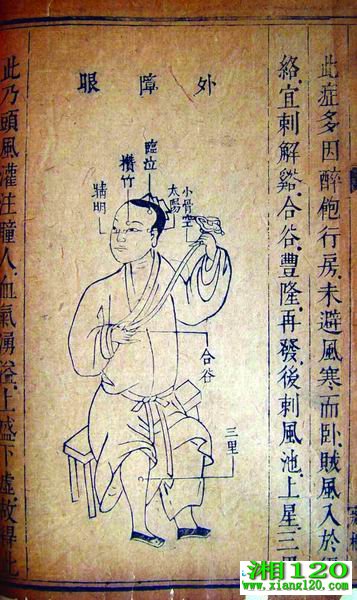 此症多因醉飽行房、未避風寒而臥、賊風入於
絡、宜刺解谿、合谷、豐隆、再發、後刺風池、上星、三
外障眼
小骨空
太陽
臨泣
攢竹
睛明
合谷
三里
此乃頭風灌注瞳人、血氣湧溢、上盛下虛、故
湘120
www.xiang120.com